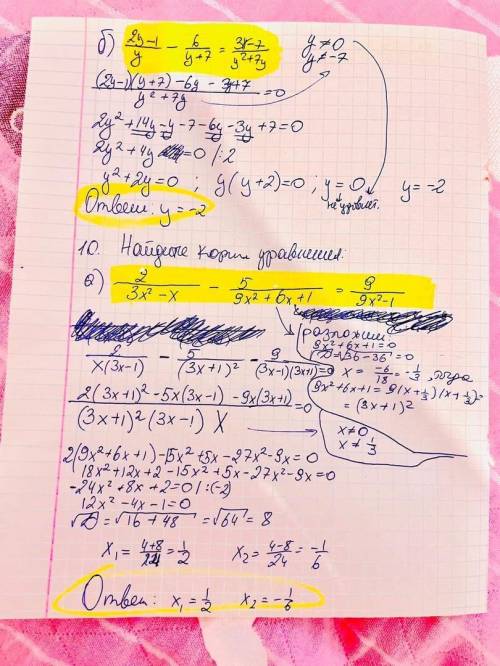 б) (2y-1)/y - 6/(y+7) = (3y-7)/(y²+7y)   y≠0
y≠-7
((2y-1)(y+7) - 6y - 3y+7)/(y²+7y) = 0
2y²+14y-y-7-6y-3y+7=0
2y²+4y =0 /:2
y²+2y=0 ; y(y+2)=0 ; y=0   y=-2
не удовлет.
Ответ: y=-2
10. Найдите корни уравнения:
а) 2/(3x²-x) - 5/(9x²+6x+1) = 9/(9x²-1)
разложим:
9x²+6x+1=0
√D=√36-36=0
x = -6/18 = -1/3, тогда
9x²+6x+1=9(x+1/3)(x+1/3)=
=(3x+1)²
x≠0
x≠1/3
2/(x(3x-1)) - 5/(3x+1)² - 9/((3x-1)(3x+1))=0
(2(3x+1)²-5x(3x-1)-9x(3x+1))/((3x+1)²(3x-1)x)=0
2(9x²+6x+1)-15x²+5x-27x²-9x=0
18x²+12x+2-15x²+5x-27x²-9x=0
-24x²+8x+2=0/:(-2)
12x²-4x-1=0
√D=√16+48 =√64=8
x₁=(4+8)/24=1/2   x₂=(4-8)/24=-1/6
Ответ: x₁=1/2   x₂=-1/6